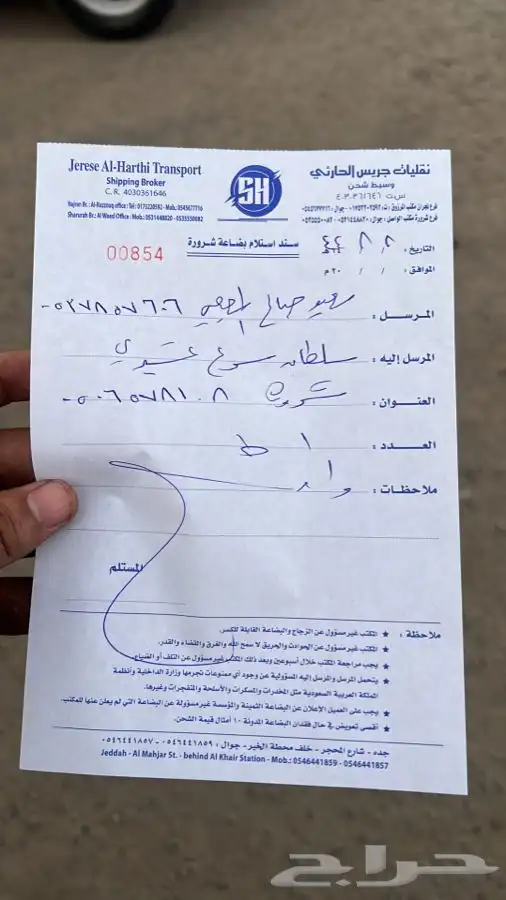 Jerese Al-Harthi Transport
Shipping Broker
C. R. 4030361646
Najran Br.: Al-Razzouq office: Tel: 0175220592 - Mob.: 0545677716
Sharurah Br.: Al Wasel Office: Mob.: 0531448820 - 0535550082
SH
نقليات جريس الحارثي
وسيط شحن
س.ت ٤٠٣٠٣٦١٦٤٦
00854
سند استلام بضاعة شرورة
التاريخ :
الموافق : / / ٢٠م
المرسل : صالح ٠٥٣٧٨٥٧٦٠٦
المرسل إليه : سلطان
العنوان : شرورة ٠٥٠٦٥٧٨١٠٨
العدد : ١
ملاحظات : واصل
المستلم
ملاحظة : ★ المكتب غير مسؤول عن الزجاج والبضاعة القابلة للكسر.
★ المكتب غير مسؤول عن الحوادث والحريق لا سمح الله والغرق والقضاء والقدر.
★ يجب مراجعة المكتب خلال أسبوعين وبعد ذلك المكتب غير مسؤول عن التلف أو الضياع.
★ يتحمل المرسل والمرسل إليه المسؤولية عن وجود أي ممنوعات تجرمها وزارة الداخلية وأنظمة
المملكة العربية السعودية مثل المخدرات والمسكرات والأسلحة والمتفجرات وغيرها.
★ يجب على العميل الإعلان عن البضاعة الثمينة والمؤسسة غير مسؤولة عن البضاعة التي لم يعلن عنها للمكتب.
★ أقصى تعويض في حال فقدان البضاعة المدونة ١٠ أمثال قيمة الشحن.
جده - شارع المحجر - خلف محطة الخير - جوال : ٠٥٤٦٤٤١٨٥٩ - ٠٥٤٦٤٤١٨٥٧
Jeddah - Al Mahjar St. - behind Al Khair Station - Mob.: 0546441859 - 0546441857
حراج